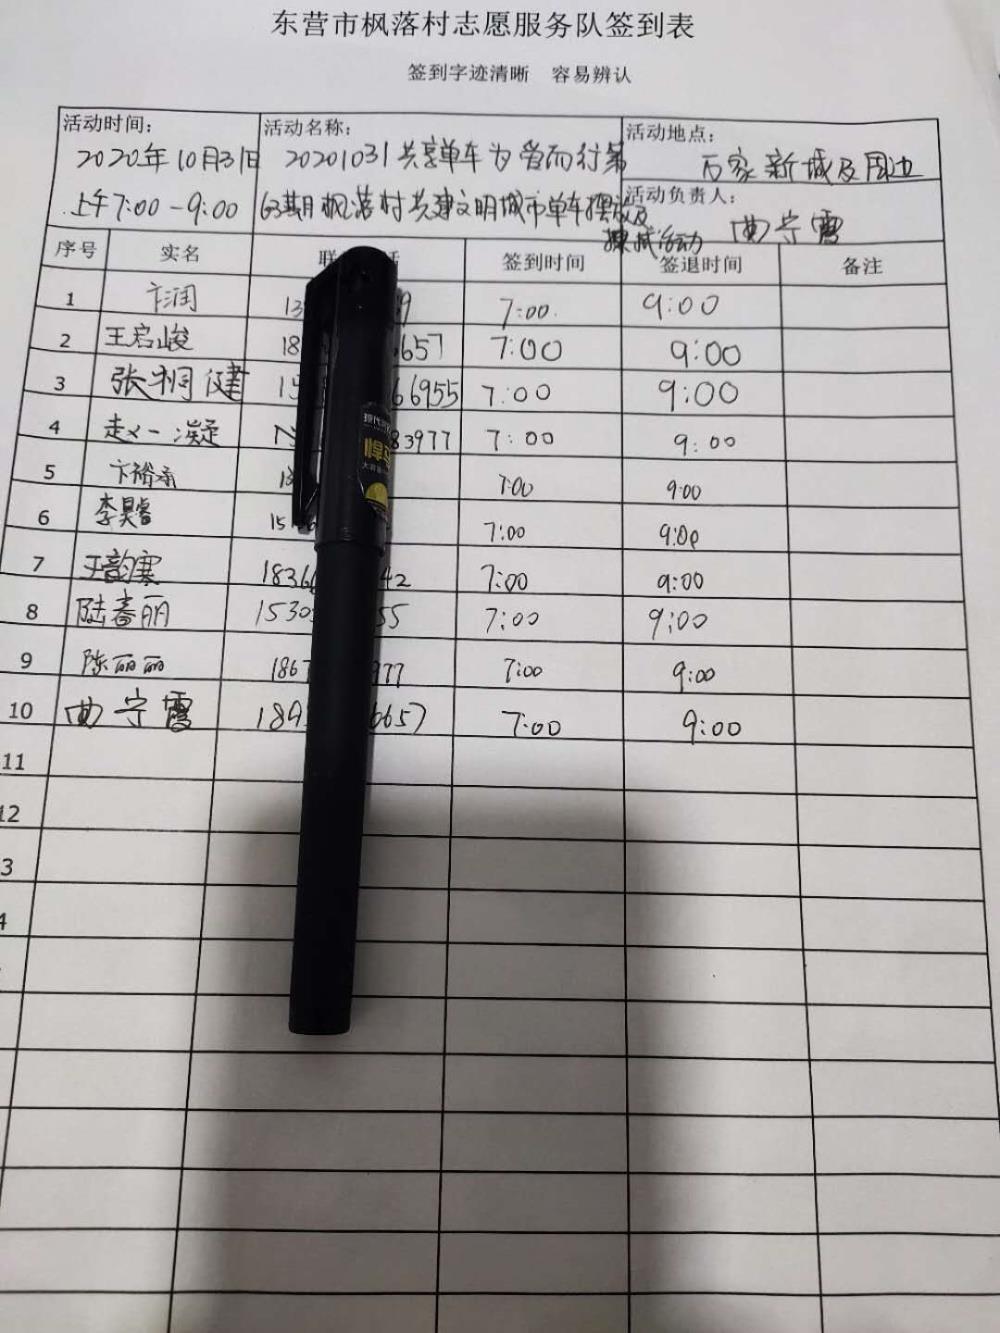 东营市枫落村志愿服务队签到表
签到字迹清晰 容易辨认
活动时间： 活动名称： 活动地点：
2020年10月31日 20201031共享单车为爱而行第 万家新城及周边
上午7:00-9:00 63期枫落村共建文明城市单车摆放及 活动负责人：
擦拭活动 曲宁霞
序号 实名 联 话 签到时间 签退时间 备注
1 卞润 13 9 7:00 9:00
2 王启峻 18 657 7:00 9:00
3 张桐健 15 66955 7:00 9:00
4 赵一凝 83977 7:00 9:00
5 卞裕 7:00 9:00
6 李昊睿 15 7:00 9:00
7 王韵寒 1836 42 7:00 9:00
8 陆春丽 1530 55 7:00 9:00
9 陈丽丽 1867 977 7:00 9:00
10 曲宁霞 189 6657 7:00 9:00
11
12
3
4